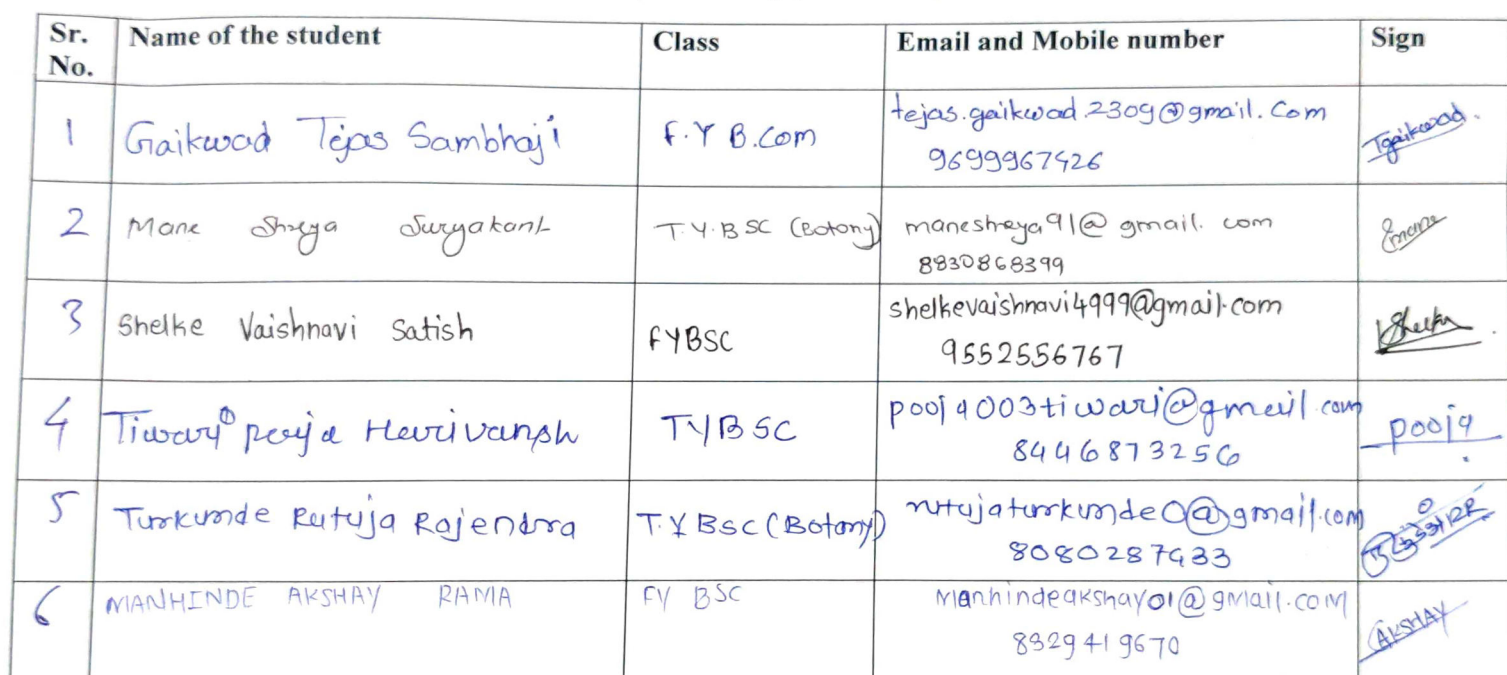 Sr. No. Name of the student Class Email and Mobile number Sign
1 Gaikwad Tejas Sambhaji F.Y B.Com tejas.gaikwad.2309@gmail.com Tgaikwad.
9699967426
2 Mane Shreya Suryakant T.Y.BSC (Botony) maneshreya91@gmail.com Smane
8830868399
3 Shelke Vaishnavi Satish FYBSC shelkevaishnavi4999@gmail.com
9552556767
4 Tiwari pooja Harivansh TYBSC pooja003tiwari@gmail.com pooja
8446873256
5 Turkunde Rutuja Rajendra T.Y Bsc (Botany) rutujaturkunde0@gmail.com
8080287433
6 MANHINDE AKSHAY RAMA FY BSC Manhindeakshay01@gmail.com AKSHAY
8329419670